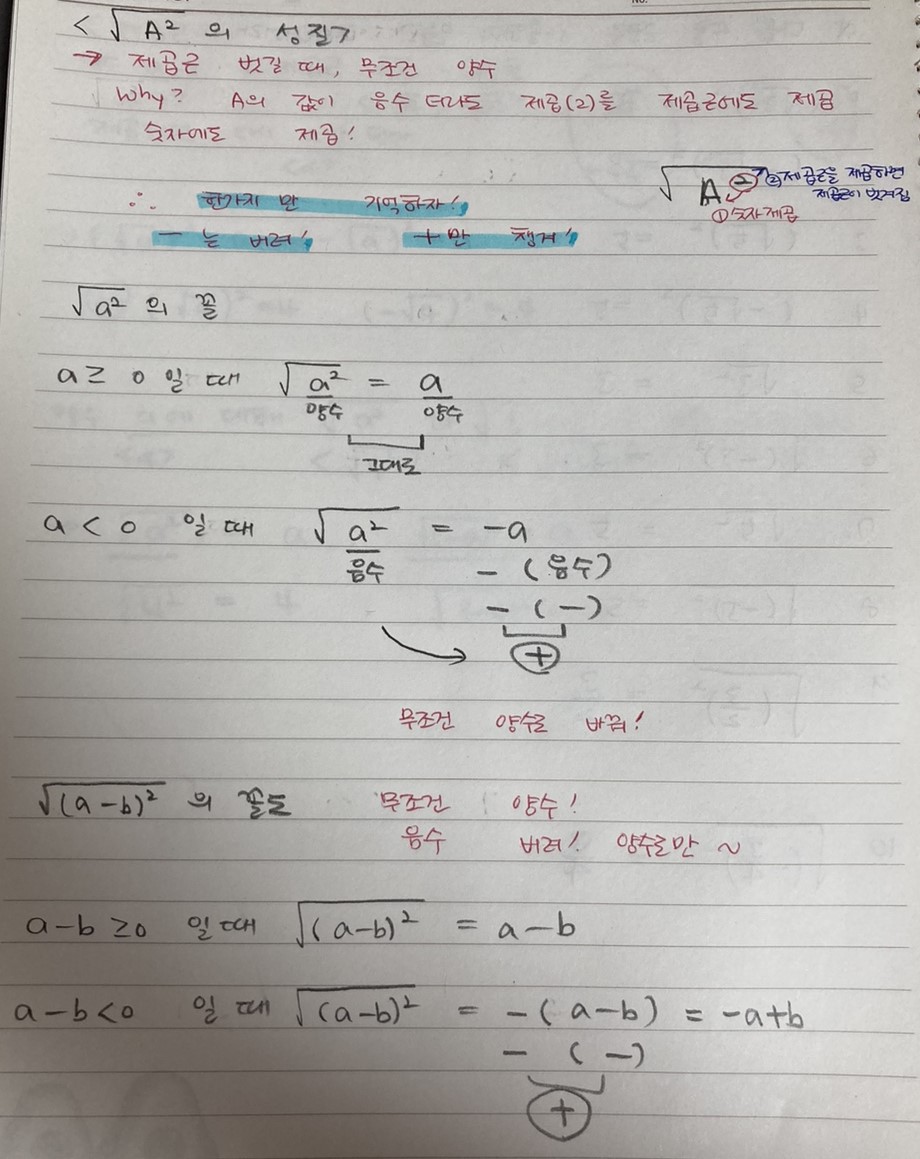 < √A² 의 성질>
→ 제곱근 벗길 때, 무조건 양수
Why? A의 값이 음수 더라도 제곱(2)를 제곱근에도 제곱
숫자에도 제곱!
√A² ②제곱근을 제곱하면
제곱근이 벗겨짐
①숫자제곱
∴ 한가지 만 기억하자!
- 는 버려! +만 챙겨!
√a² 의 꼴
a ≥ 0 일 때 √a² = a
양수 양수
그대로
a < 0 일 때 √a² = -a
음수 - (음수)
- (-)
+
무조건 양수로 바뀜!
√(a-b)² 의 꼴도 무조건 양수!
음수 버려! 양수로만 ~
a-b ≥0 일때 √(a-b)² = a-b
a-b<0 일 때 √(a-b)² = -(a-b) = -a+b
- (-)
+